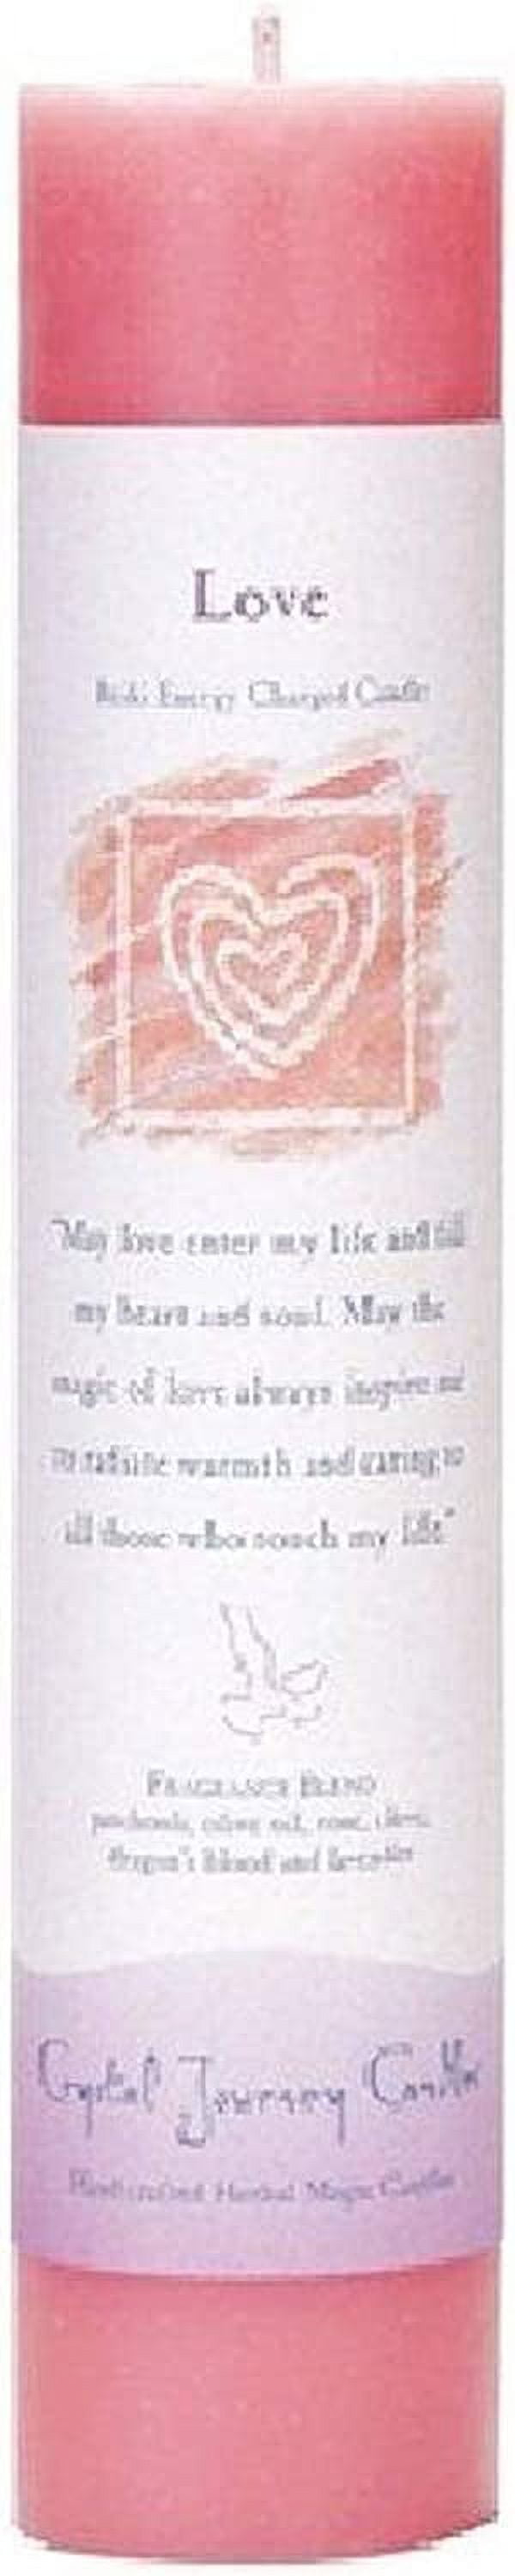 Love
Reiki Energy Charged Candle
"May love enter my life and fill
my heart and soul. May the
magic of love always inspire me
to radiate warmth and caring to
all those who touch my life"
FRAGRANCE BLEND
patchouli, rose,
Dragon's Blood and lavender
Crystal Journey Candles
Handcrafted Herbal Magic Candles